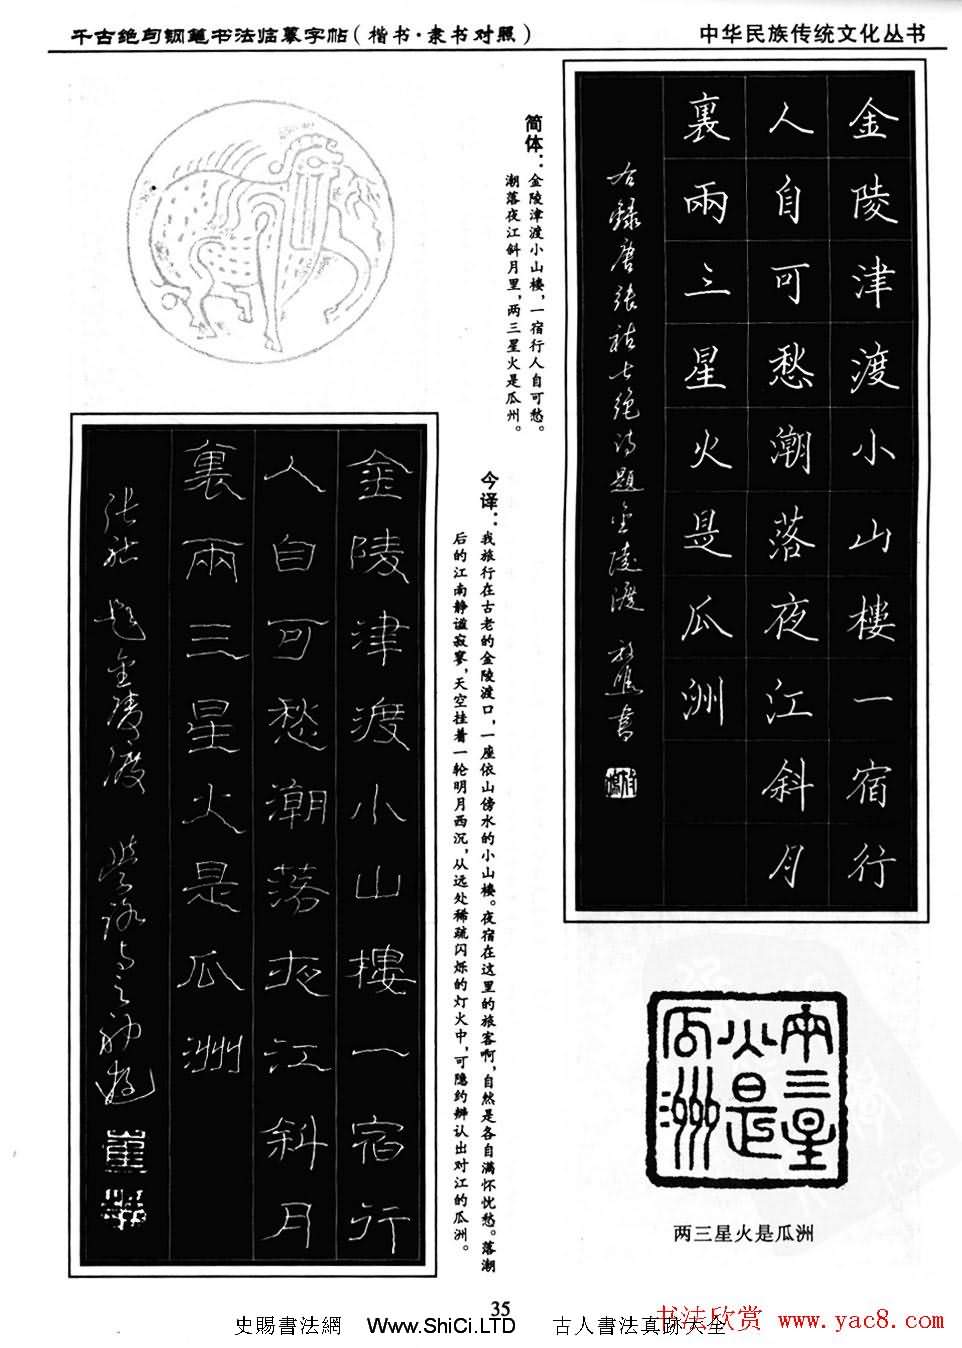 千古绝句钢笔书法临摹字帖(楷书·隶书对照)
中华民族传统文化丛书
金陵津渡小山樓一宿行
人自可愁潮落夜江斜月
裏兩三星火是瓜洲
右録唐張祜七绝诗題金陵渡
简体:金陵津渡小山楼,一宿行人自可愁。
潮落夜江斜月里,两三星火是瓜州。
今译:我旅行在古老的金陵渡口,一座依山傍水的小山楼。夜宿在这里的旅客啊,自然是各自满怀忧愁。落潮
后的江南静谧寂寥,天空挂着一轮明月西沉,从远处稀疏闪烁的灯火中,可隐约辨认出对江的瓜洲。
金陵津渡小山樓一宿行
人自可愁潮落夜江斜月
裏兩三星火是瓜洲
張祜 題金陵渡
兩三星
火是
瓜洲
两三星火是瓜洲
35
史賜書法網 (Www.ShiCi.LTD 古人書法真跡大全
书法欣赏 www.yac8.com